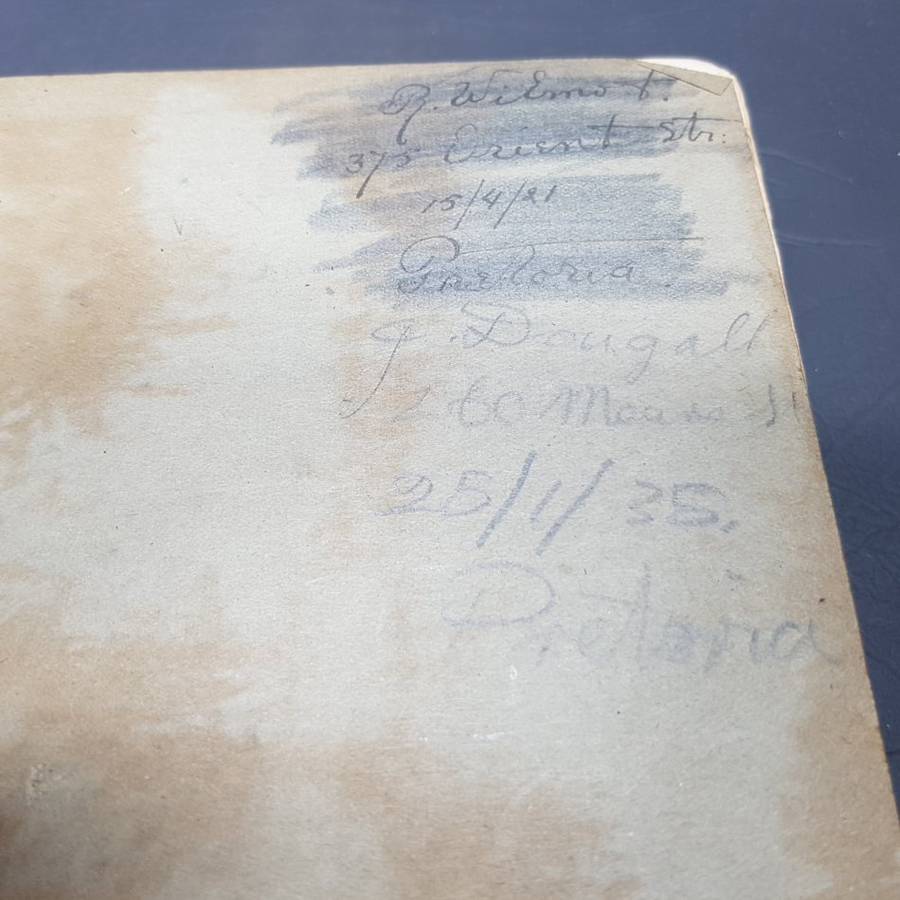 R. Wilmot.
375 Orient Str.
15/4/21
Pretoria.
J. Dougall
60 Means St
25/1/35.
Pretoria